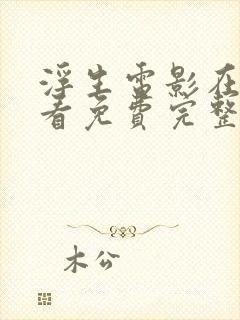 浮生雷影在
看免费完整
木公